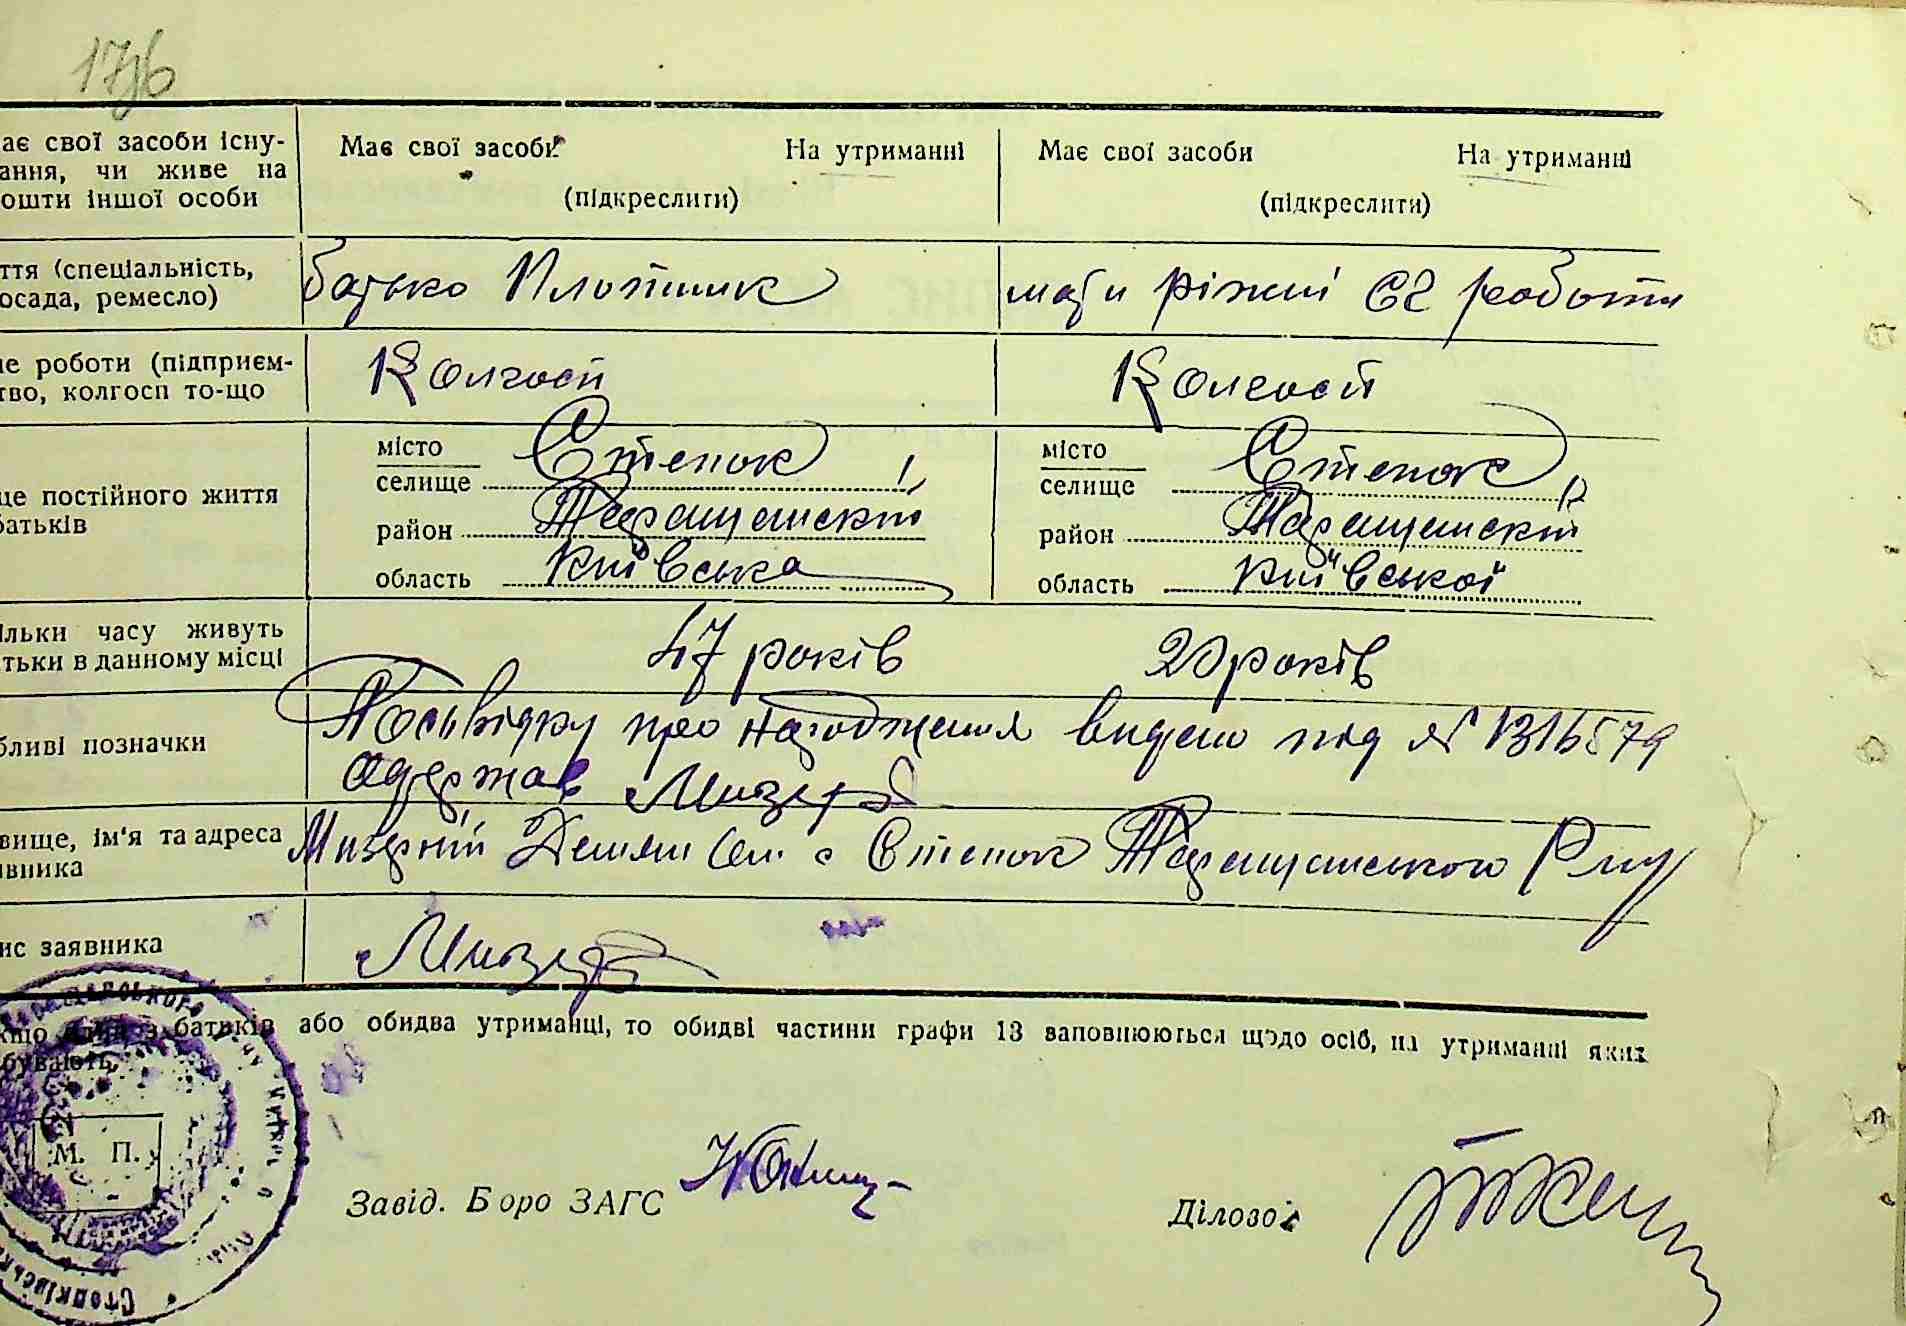 17зв
ає свої засоби існу-
ання, чи живе на
ошти іншої особи
Має свої засоби На утриманні
(підкреслити)
Має свої засоби На утриманні
(підкреслити)
ття (спеціальність,
осада, ремесло)
батько Плотник
мати ріжні с2 роботи
це роботи (підприєм-
тво, колгосп то-що
Колгосп
Колгосп
це постійного життя
батьків
місто
селище Стенок
район Таращанский
область Київська
місто
селище Стенок
район Таращанский
область Київської
ільки часу живуть
тьки в данному місці
47 років
20 років
бливі позначки
Посвідку про народження видано під № 1316579
одержав Мизер
вище, ім'я та адреса
явника
Мизерній Демян Сем с Стенок Таращанського Р-ну
ис заявника
Мизер
кщо один з батьків або обидва утриманці, то обидві частини графи 13 заповнюються щодо осіб, на утриманні яких
бувають.
М. П.
Завід. Бюро ЗАГС
Діловод